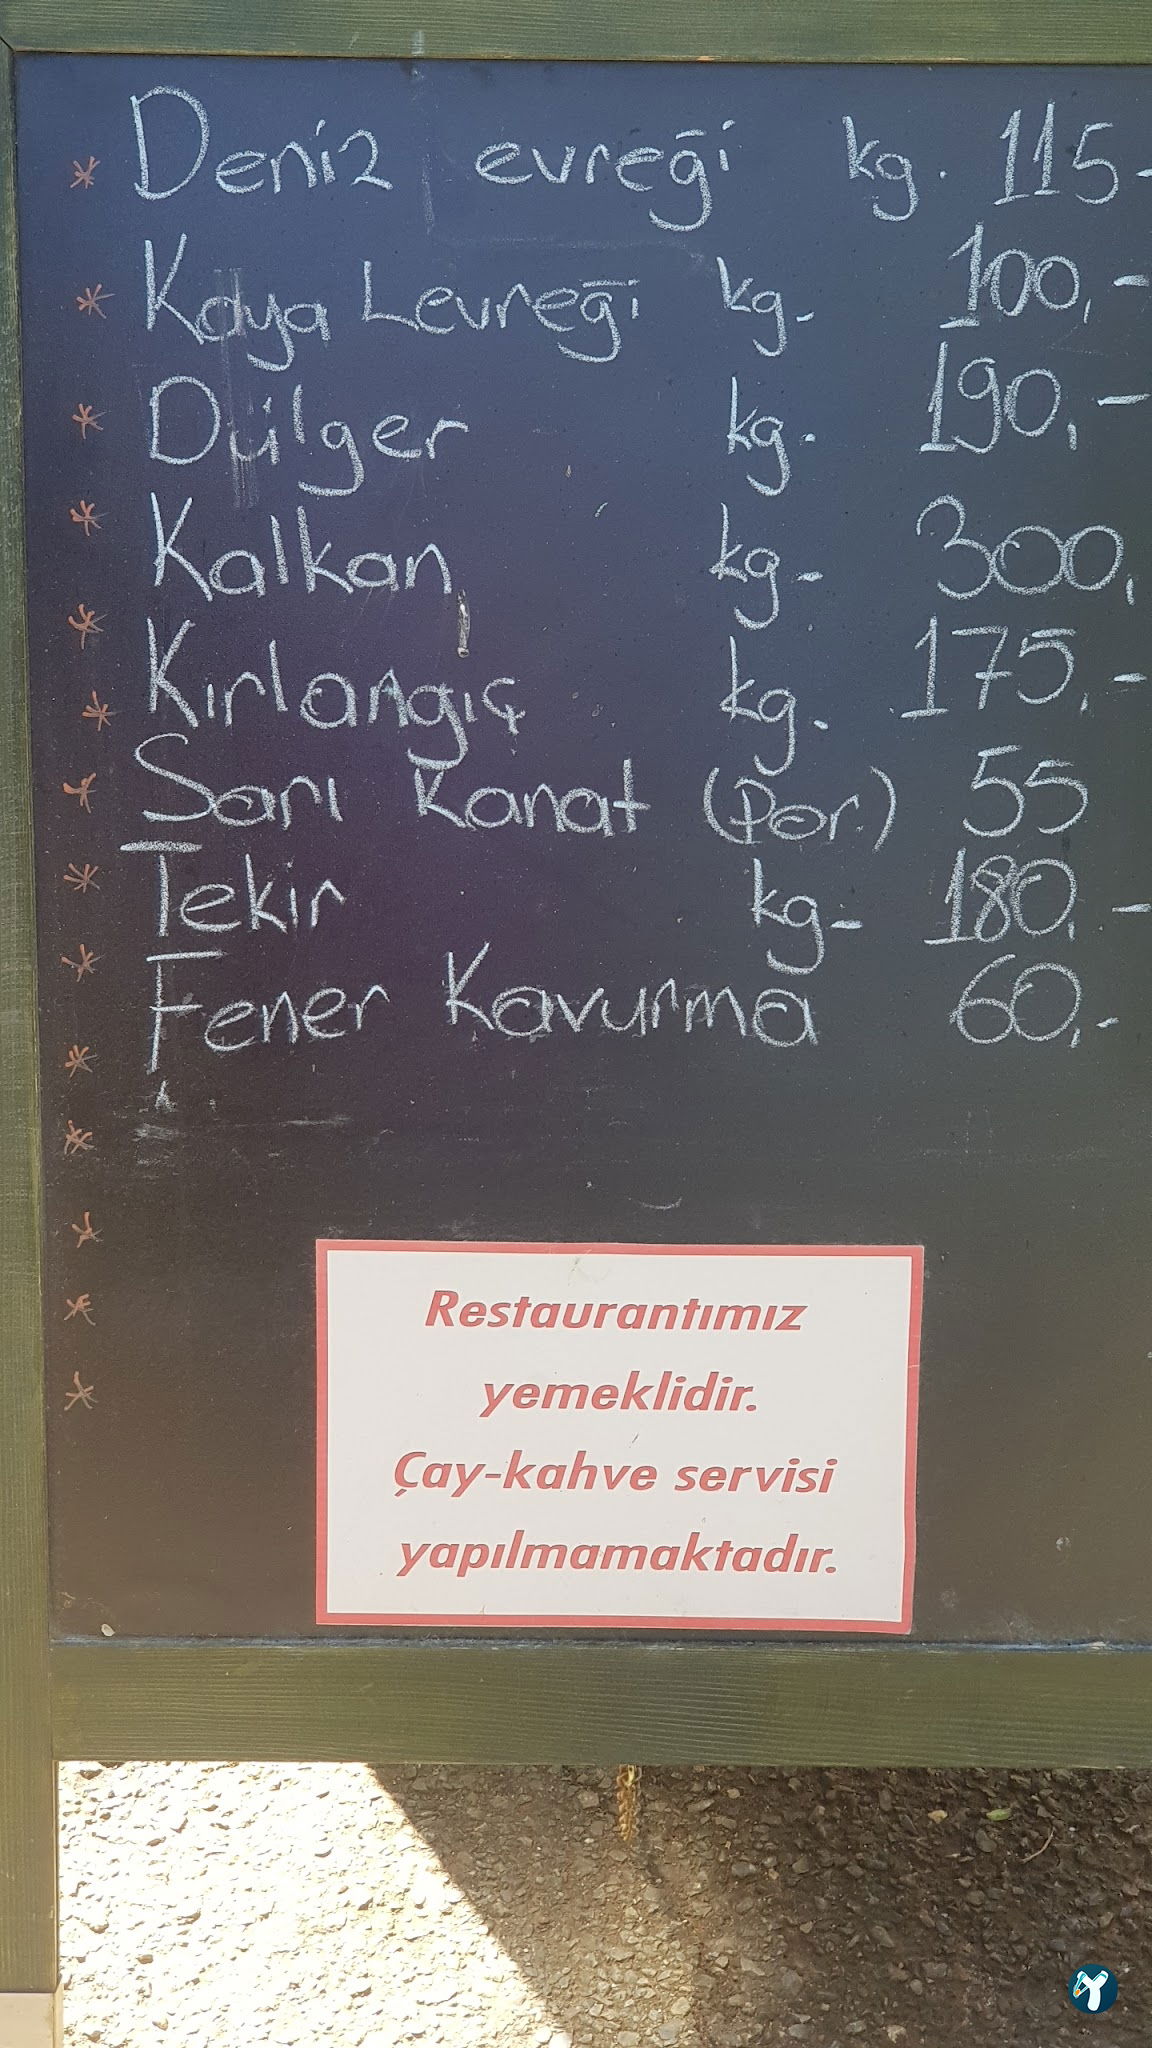 * Deniz evreği kg. 115-
* Kaya Levreği kg. 100,-
* Dülger kg. 190,-
* Kalkan kg. 300,
* Kırlangıç kg. 175,-
* Sarı Kanat (Por.) 55
* Tekir kg. 180,-
* Fener Kavurma 60,-
Restaurantımız
yemeklidir.
Çay-kahve servisi
yapılmamaktadır.